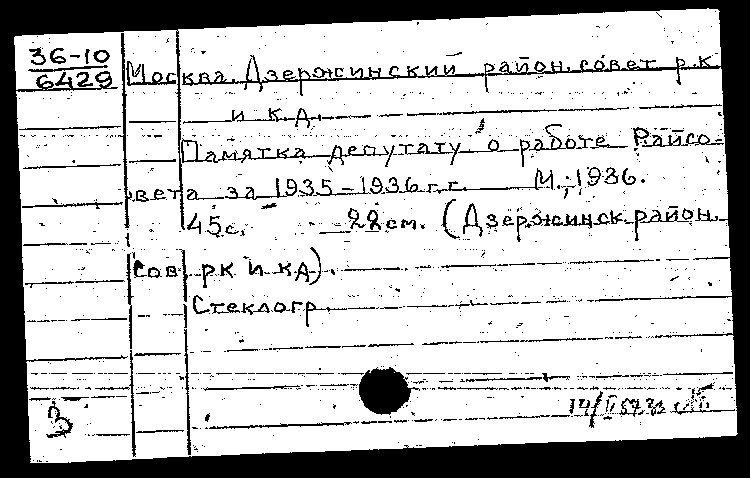 36-10
6429
Москва. Дзержинский район. совет р.к.
и к.д.
Памятка депутату о работе Райсо-
вета за 1935-1936 г.г. М., 1936.
45 с. 22 см. (Дзержинск. район.
сов. рк и кд).
Стеклогр.
З